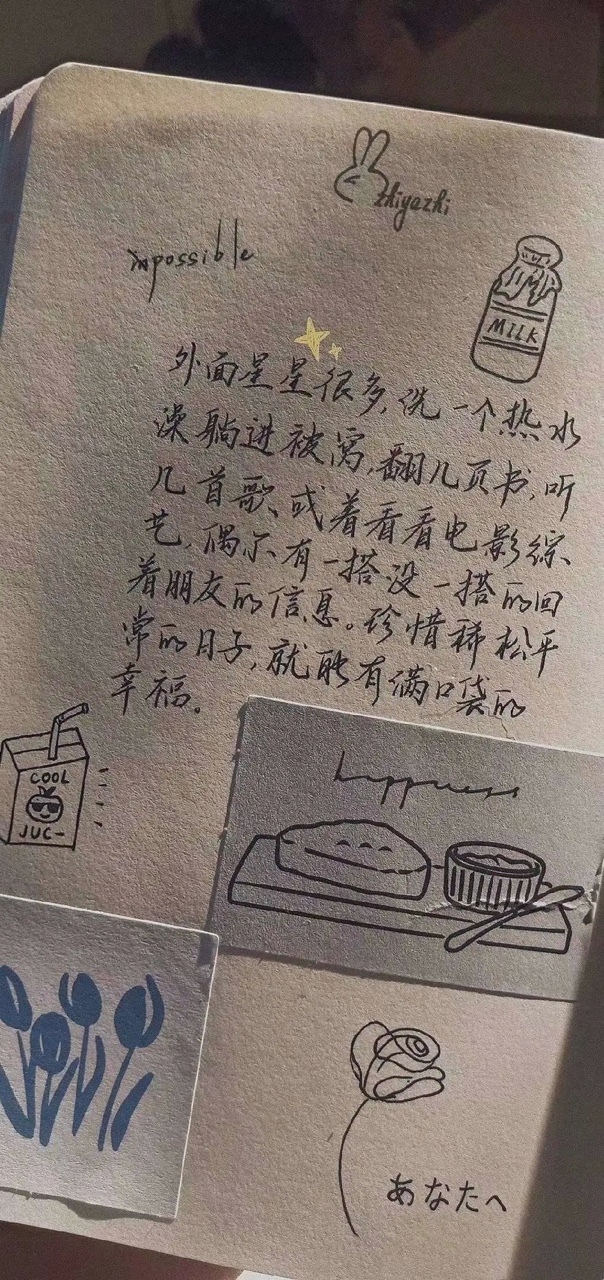 zhiyazhi
impossible
MILK
外面星星很多,洗一个热水
澡躺进被窝,翻几页书,听
几首歌、或着看看电影综
艺,偶尔有一搭没一搭的回
着朋友的信息。珍惜稀松平
常的日子,就能有满口袋的
幸福。
COOL
JUC-
happness
あなたへ